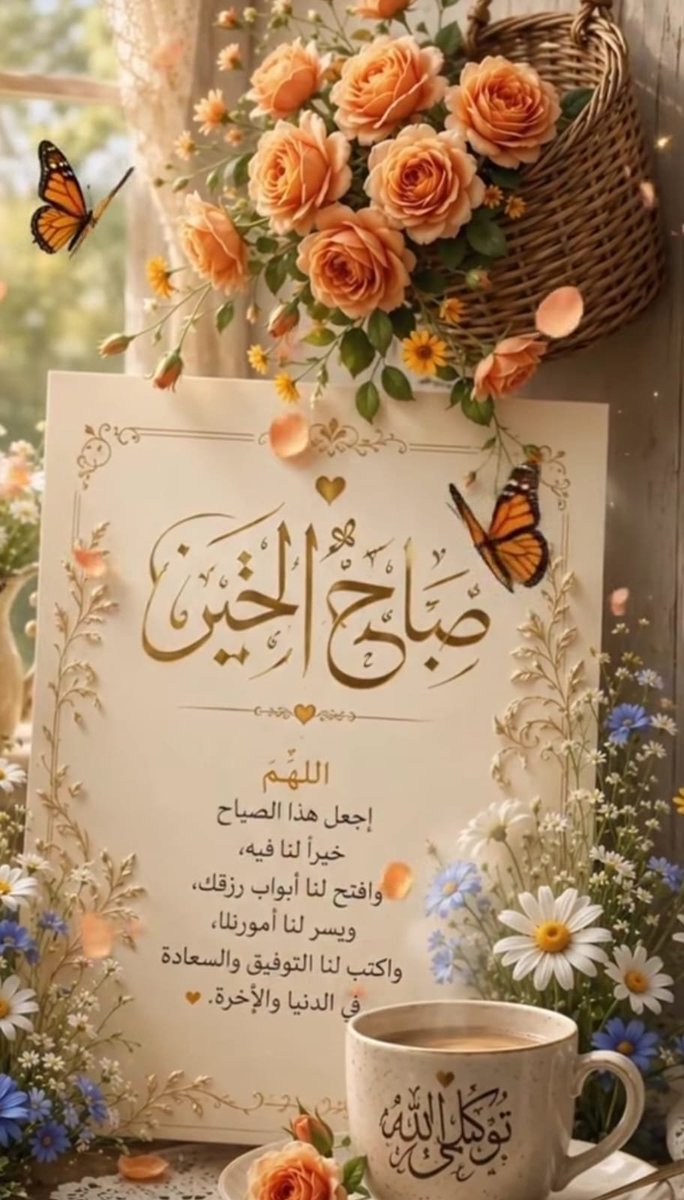 صباح الخير
اللهم
إجعل هذا الصياح
خيراً لنا فيه،
وافتح لنا أبواب رزقك،
ويسر لنا أمورنلا،
واكتب لنا التوفيق والسعادة
في الدنيا والإخرة.
توكلي الله